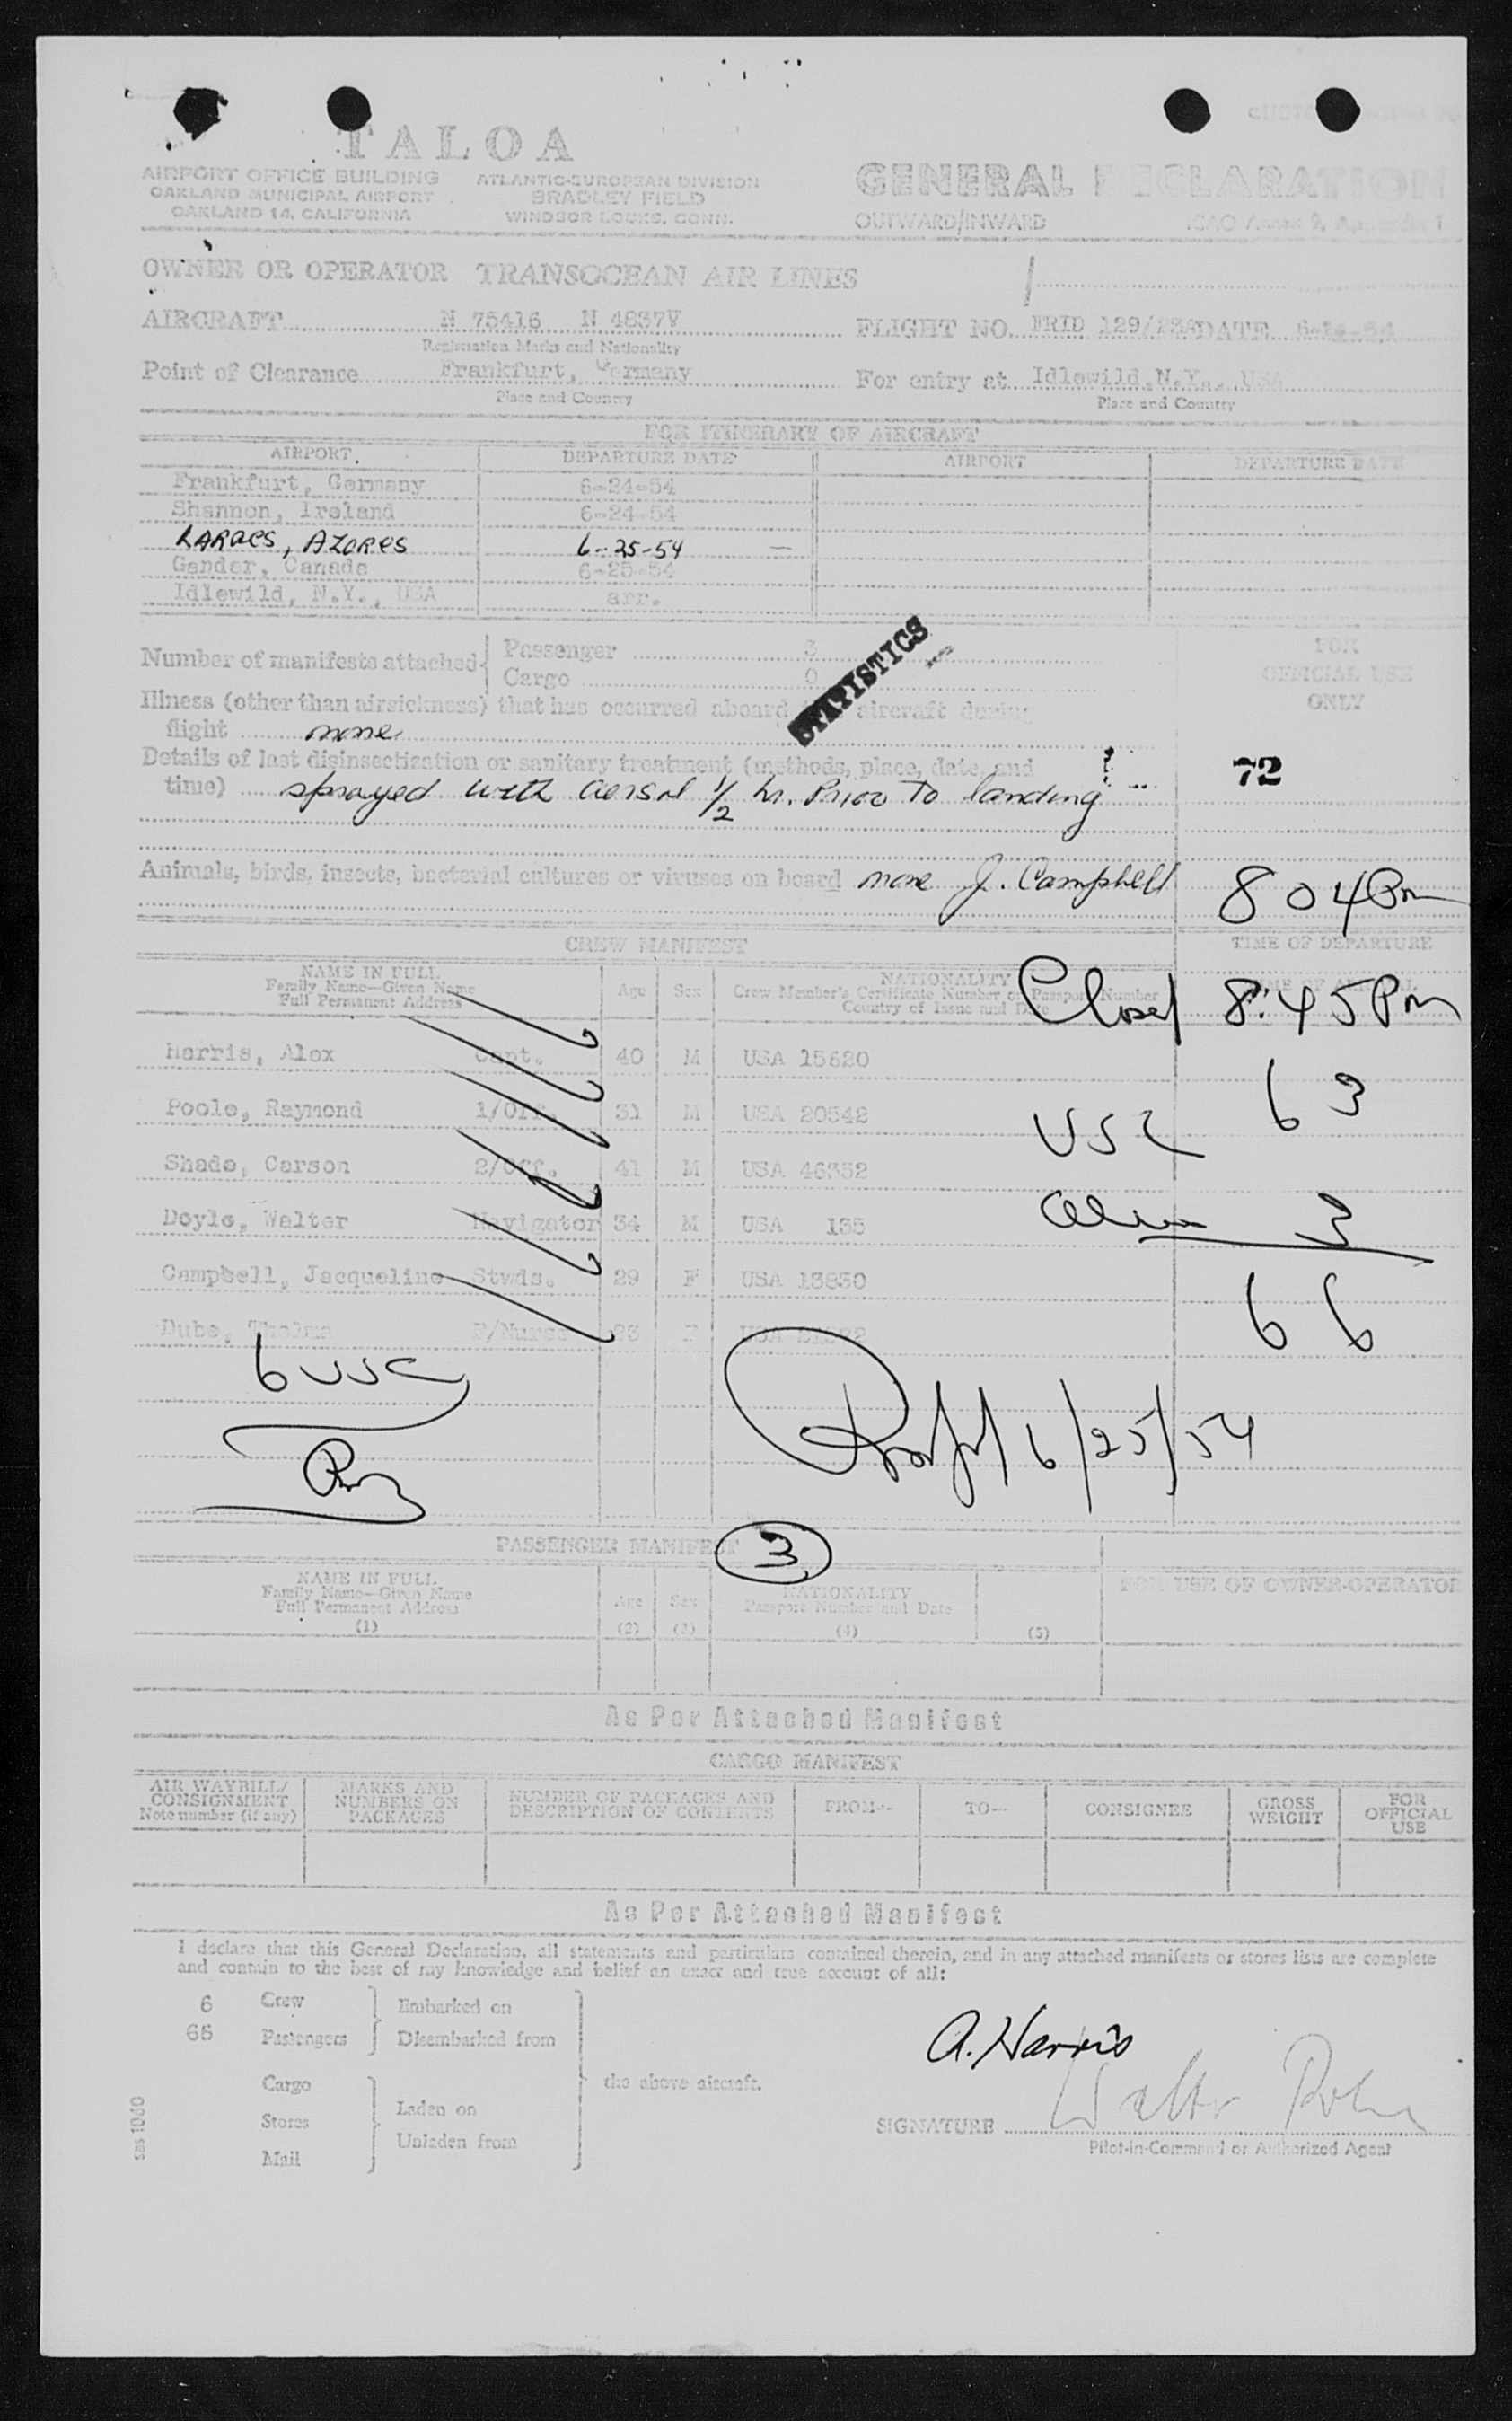 TALOA
AIRPORT OFFICE BUILDING
OAKLAND MUNICIPAL AIRPORT
OAKLAND 14, CALIFORNIA
ATLANTIC-EUROPEAN DIVISION
BRADLEY FIELD
WINDSOR LOCKS, CONN.
GENERAL DECLARATION
OUTWARD/INWARD
ICAO Annex 9, Appendix 1
OWNER OR OPERATOR TRANSOCEAN AIR LINES
AIRCRAFT N 75416 N 4837V
Registration Marks and Nationality
FLIGHT NO. FRID 129/ DATE
Point of Clearance Frankfurt, Germany
Place and Country
For entry at Idlewild, N.Y., USA
Place and Country
FOR ITINERARY OF AIRCRAFT
AIRPORT DEPARTURE DATE AIRPORT DEPARTURE DATE
Frankfurt, Germany 6-24-54
Shannon, Ireland 6-24-54
LARGES, AZORES 6-25-54 —
Gander, Canada 6-25-54
Idlewild, N.Y., USA arr.
Number of manifests attached Passenger 3
Cargo 0
STATISTICS
FOR
OFFICIAL USE
ONLY
Illness (other than airsickness) that has occurred aboard aircraft during
flight none
Details of last disinsectization or sanitary treatment (methods, place, date, and
time) sprayed with aersol 1/2 hr. Prior to landing
72
Animals, birds, insects, bacterial cultures or viruses on board none J. Campbell
8 04 Pm
TIME OF DEPARTURE
CREW MANIFEST
NAME IN FULL
Family Name—Given Name
Full Permanent Address
Age Sex
NATIONALITY
Crew Member's Certificate Number or Passport Number
Country of Issue and Date
TIME OF ARRIVAL
Closed 8:45 Pm
Harris, Alex Capt. 40 M USA 15620
Poole, Raymond 1/Off. 31 M USA 20542
USC 63
Shade, Carson 2/Off. 41 M USA 46352
Doyle, Walter Navigator 34 M USA 135
Alien 3
Campbell, Jacqueline Stwds. 29 F USA 13830
66
Dube, Thelma P/Nurse 23 F USA
6 USC
6/25/54
PASSENGER MANIFEST
3
NAME IN FULL
Family Name—Given Name
Full Permanent Address
(1)
Age
(2)
Sex
(3)
NATIONALITY
Passport Number and Date
(4)
(5)
FOR USE OF OWNER-OPERATOR
As Per Attached Manifest
CARGO MANIFEST
AIR WAYBILL/
CONSIGNMENT
Note number (if any)
MARKS AND
NUMBERS ON
PACKAGES
NUMBER OF PACKAGES AND
DESCRIPTION OF CONTENTS
FROM—
TO—
CONSIGNEE
GROSS
WEIGHT
FOR
OFFICIAL
USE
As Per Attached Manifest
I declare that this General Declaration, all statements and particulars contained therein, and in any attached manifests or stores lists are complete
and contain to the best of my knowledge and belief an exact and true account of all:
6 Crew Embarked on
66 Passengers Disembarked from
Cargo
Stores Laden on
Mail Unladen from
the above aircraft.
A. Harris
SIGNATURE Walter
Pilot-in-Command or Authorized Agent
sas 1060